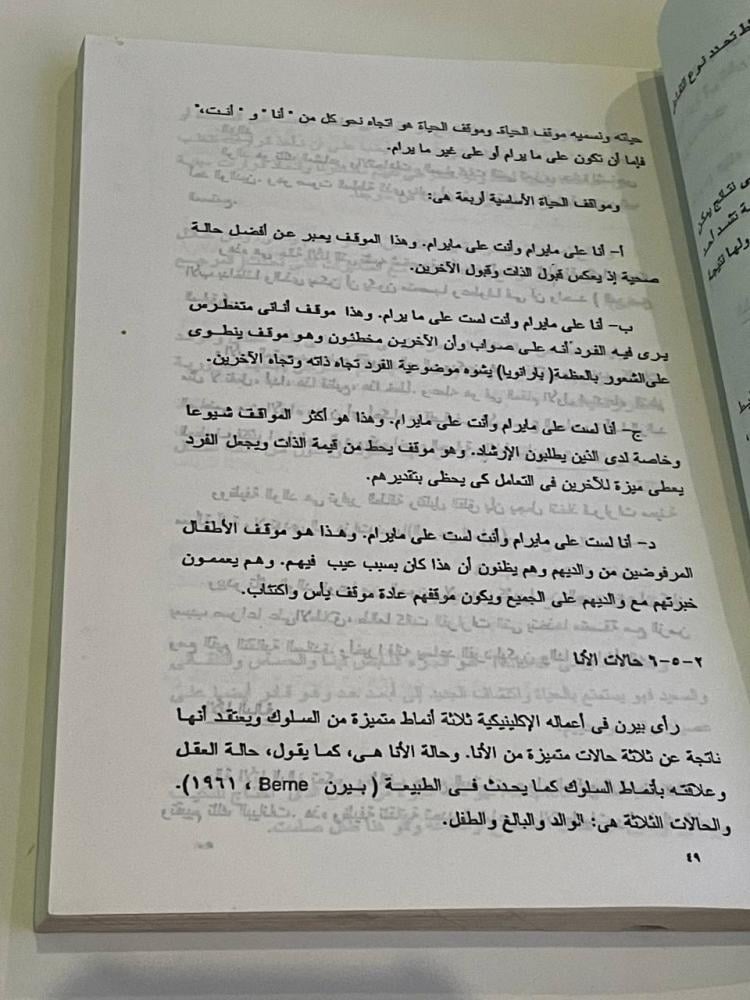 حياته ونسميه موقف الحياة. وموقف الحياة هو اتجاه نحو كل من "أنا" و "أنت"،
فإما أن تكون على ما يرام أو على غير ما يرام.
ومواقف الحياة الأساسية أربعة هى:
أ- أنا على مايرام وأنت على مايرام. وهذا الموقف يعبر عن أفضل حالة
صحية إذ يعكس قبول الذات وقبول الآخرين.
ب- أنا على مايرام وأنت لست على ما يرام. وهذا موقف أنانى متغطرس
يرى فيه الفرد أنه على صواب وأن الآخرين مخطئون وهو موقف ينطوى
على الشعور بالعظمة (بارانويا) يشوه موضوعية الفرد تجاه ذاته وتجاه الآخرين.
ج- أنا لست على مايرام وأنت على مايرام. وهذا هو أكثر المواقف شيوعا
وخاصة لدى الذين يطلبون الإرشاد. وهو موقف يحط من قيمة الذات ويجعل الفرد
يعطى ميزة للآخرين فى التعامل كى يحظى بتقديرهم.
د- أنا لست على مايرام وأنت لست على مايرام. وهذا هو موقف الأطفال
المرفوضين من والديهم وهم يظنون أن هذا كان بسبب عيب فيهم. وهم يعممون
خبرتهم مع والديهم على الجميع ويكون موقفهم عادة موقف يأس واكتئاب.
٢-٥-٦ حالات الأنا
رأى بيرن فى أعماله الإكلينيكية ثلاثة أنماط متميزة من السلوك ويعتقد أنها
ناتجة عن ثلاثة حالات متميزة من الأنا. وحالة الأنا هى، كما يقول، حالة العقل
وعلاقته بأنماط السلوك كما يحدث فى الطبيعة (بيرن Berne ، ١٩٦١).
والحالات الثلاثة هى: الوالد والبالغ والطفل.
٤٩